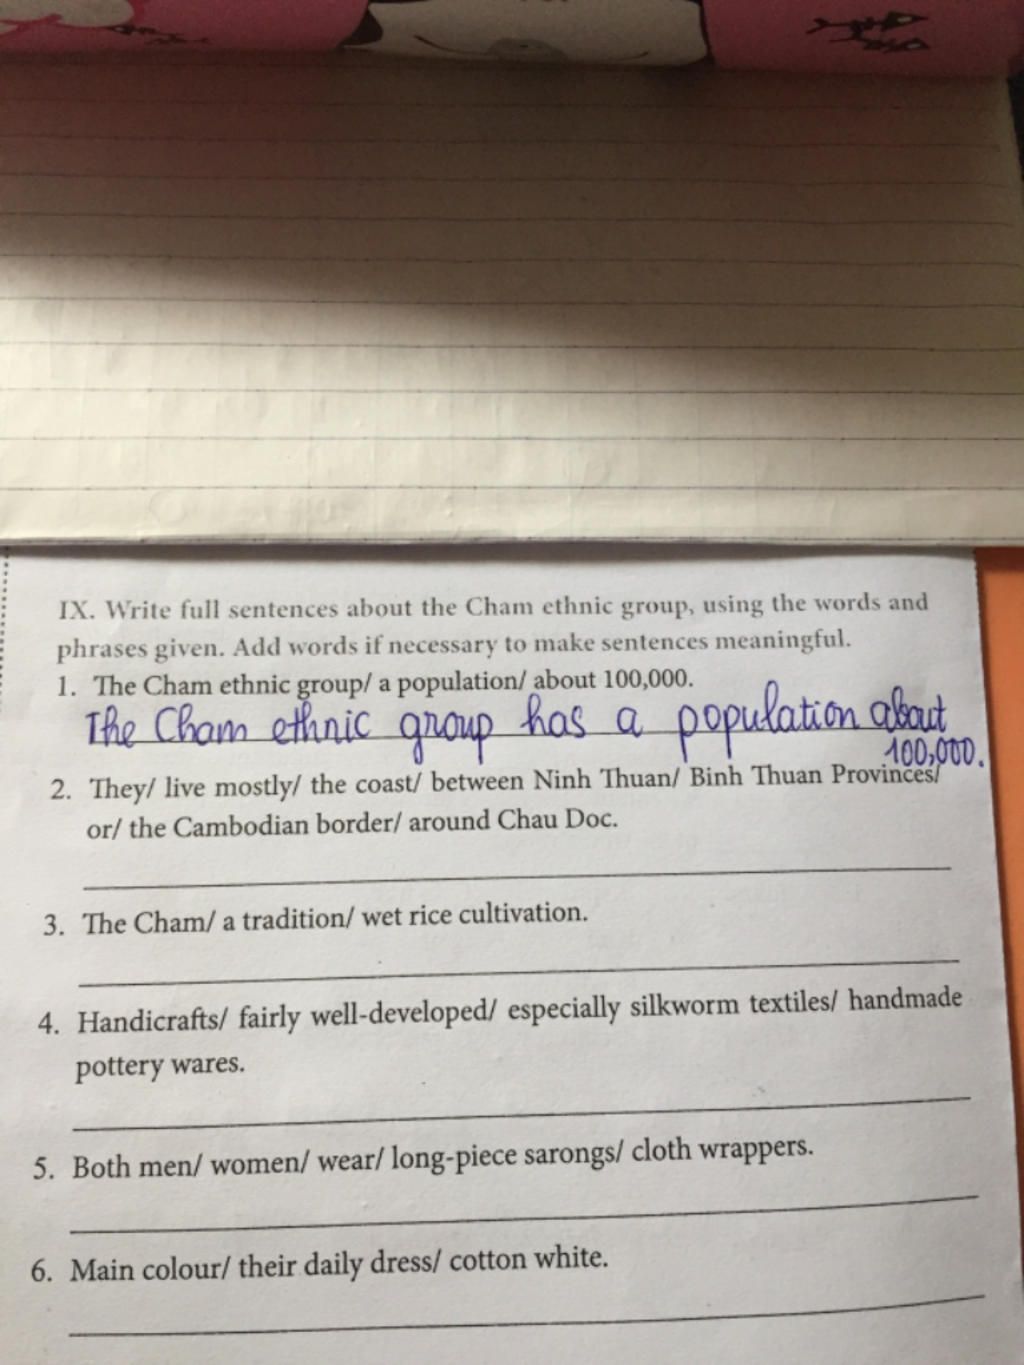 IX. Write full sentences about the Cham ethnic group, using the words and
phrases given. Add words if necessary to make sentences meaningful.
1. The Cham ethnic group/ a population/ about 100,000.
The Cham ethnic group has a population about
100,000.
2. They/ live mostly/ the coast/ between Ninh Thuan/ Binh Thuan Provinces/
or/ the Cambodian border/ around Chau Doc.
3. The Cham/ a tradition/ wet rice cultivation.
4. Handicrafts/ fairly well-developed/ especially silkworm textiles/ handmade
pottery wares.
5. Both men/ women/ wear/ long-piece sarongs/ cloth wrappers.
6. Main colour/ their daily dress/ cotton white.